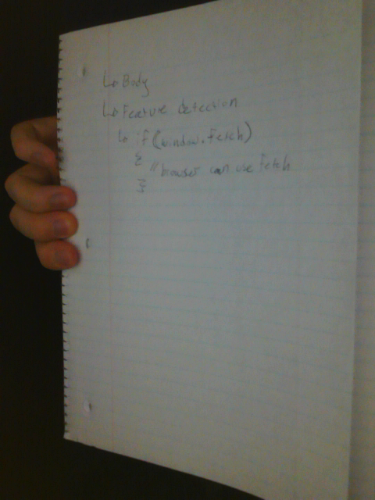 ↳ Body
↳ Feature detection
↳ if (window.fetch)
{
// browser can use fetch
}